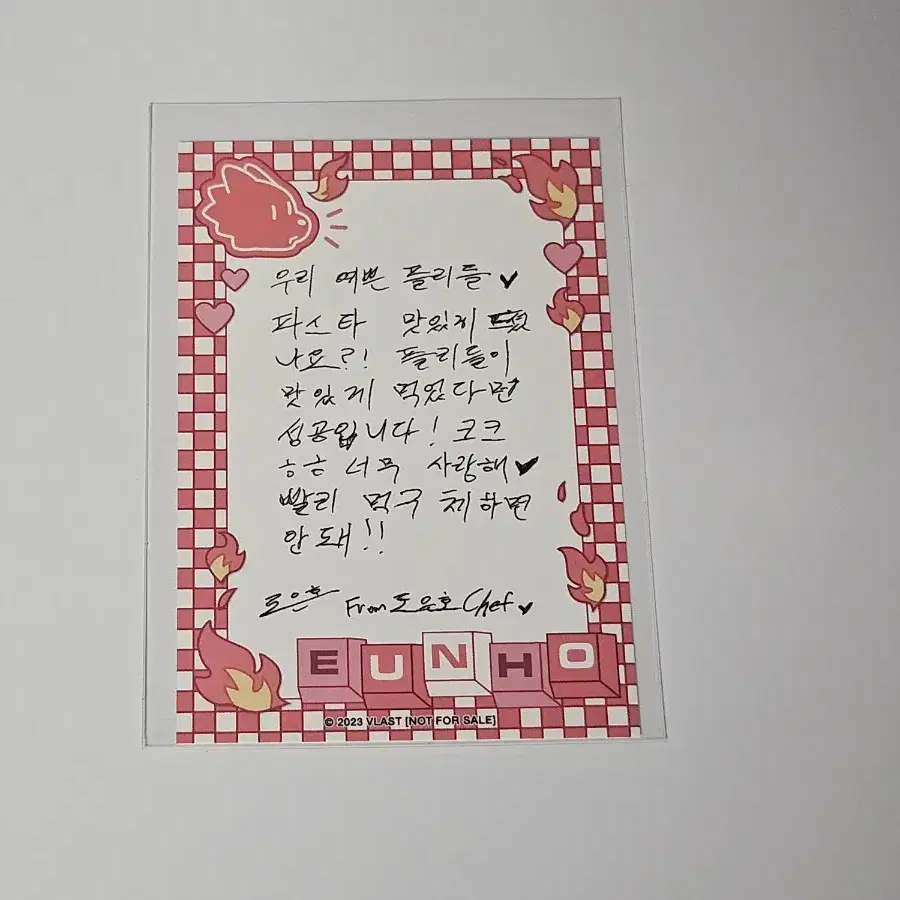 우리 예쁜 플리들 ♥
파스타 맛있게
나요?! 플리들이
맛있게 먹었다면
성공입니다! 코크
ㅎㅎ 너무 사랑해 ♥
빨리 먹구 체하면
안 돼!!
도은호 From 도은호 Chef ♥
EUNHO
© 2023 VLAST [NOT FOR SALE]